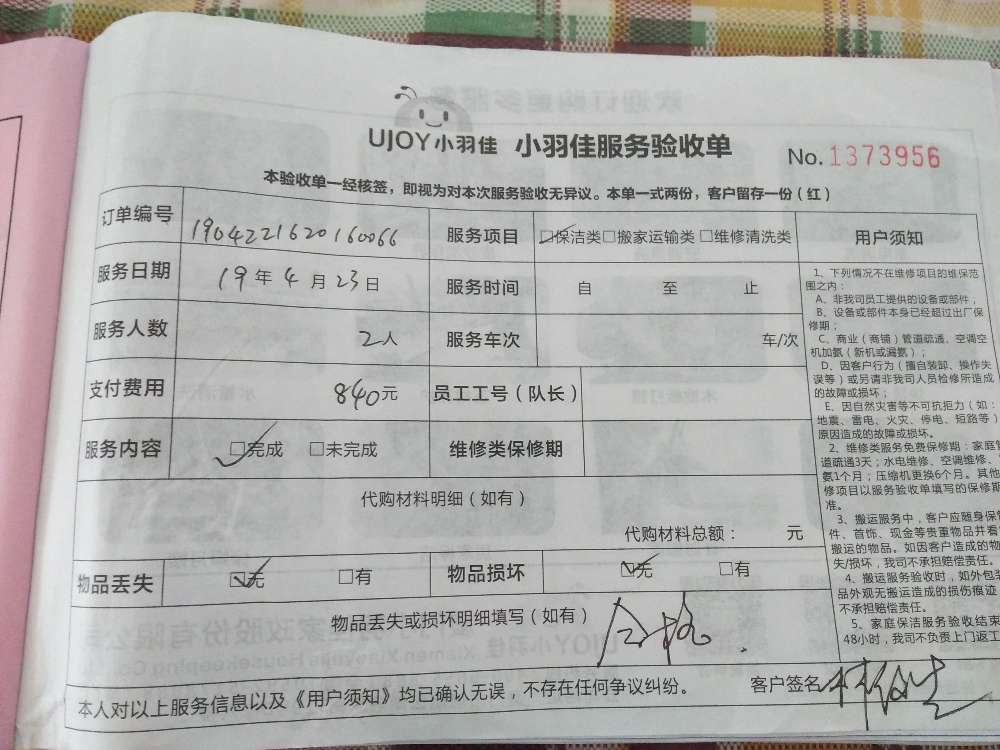 UJOY小羽佳 小羽佳服务验收单 No.1373956
本验收单一经核签，即视为对本次服务验收无异议。本单一式两份，客户留存一份（红）
订单编号 1904221620160066 服务项目 ☑保洁类□搬家运输类□维修清洗类 用户须知
服务日期 19年4月23日 服务时间 自 至 止
服务人数 2人 服务车次 车/次
支付费用 840元 员工工号（队长）
服务内容 ☑完成 □未完成 维修类保修期
代购材料明细（如有）
代购材料总额： 元
物品丢失 ☑无 □有 物品损坏 ☑无 □有
物品丢失或损坏明细填写（如有）
本人对以上服务信息以及《用户须知》均已确认无误，不存在任何争议纠纷。 客户签名
1、下列情况不在维修项目的维保范
围之内：
A、非我司员工提供的设备或部件，
B、设备或部件本身已经超过出厂保
修期；
C、商业（商铺）管道疏通、空调空
机加氨（新机或漏氨）；
D、因客户行为（擅自装卸、操作失
误等）或另请非我司人员检修所造成
的故障或损坏；
E、因自然灾害等不可抗拒力（如：
地震、雷电、火灾、停电、短路等）
原因造成的故障或损坏。
2、维修类服务免费保修期：家庭管
道疏通3天；水电维修、空调维修、
氨1个月；压缩机更换6个月。其他
修项目以服务验收单填写的保修期
准。
3、搬运服务中，客户应随身保管
件、首饰、现金等贵重物品并看
搬运的物品。如因客户造成的物
失/损坏，我司不承担赔偿责任。
4、搬运服务验收时，如外包装
品外观无搬运造成的损伤痕迹
不承担赔偿责任。
5、家庭保洁服务验收结束
48小时，我司不负责上门返工